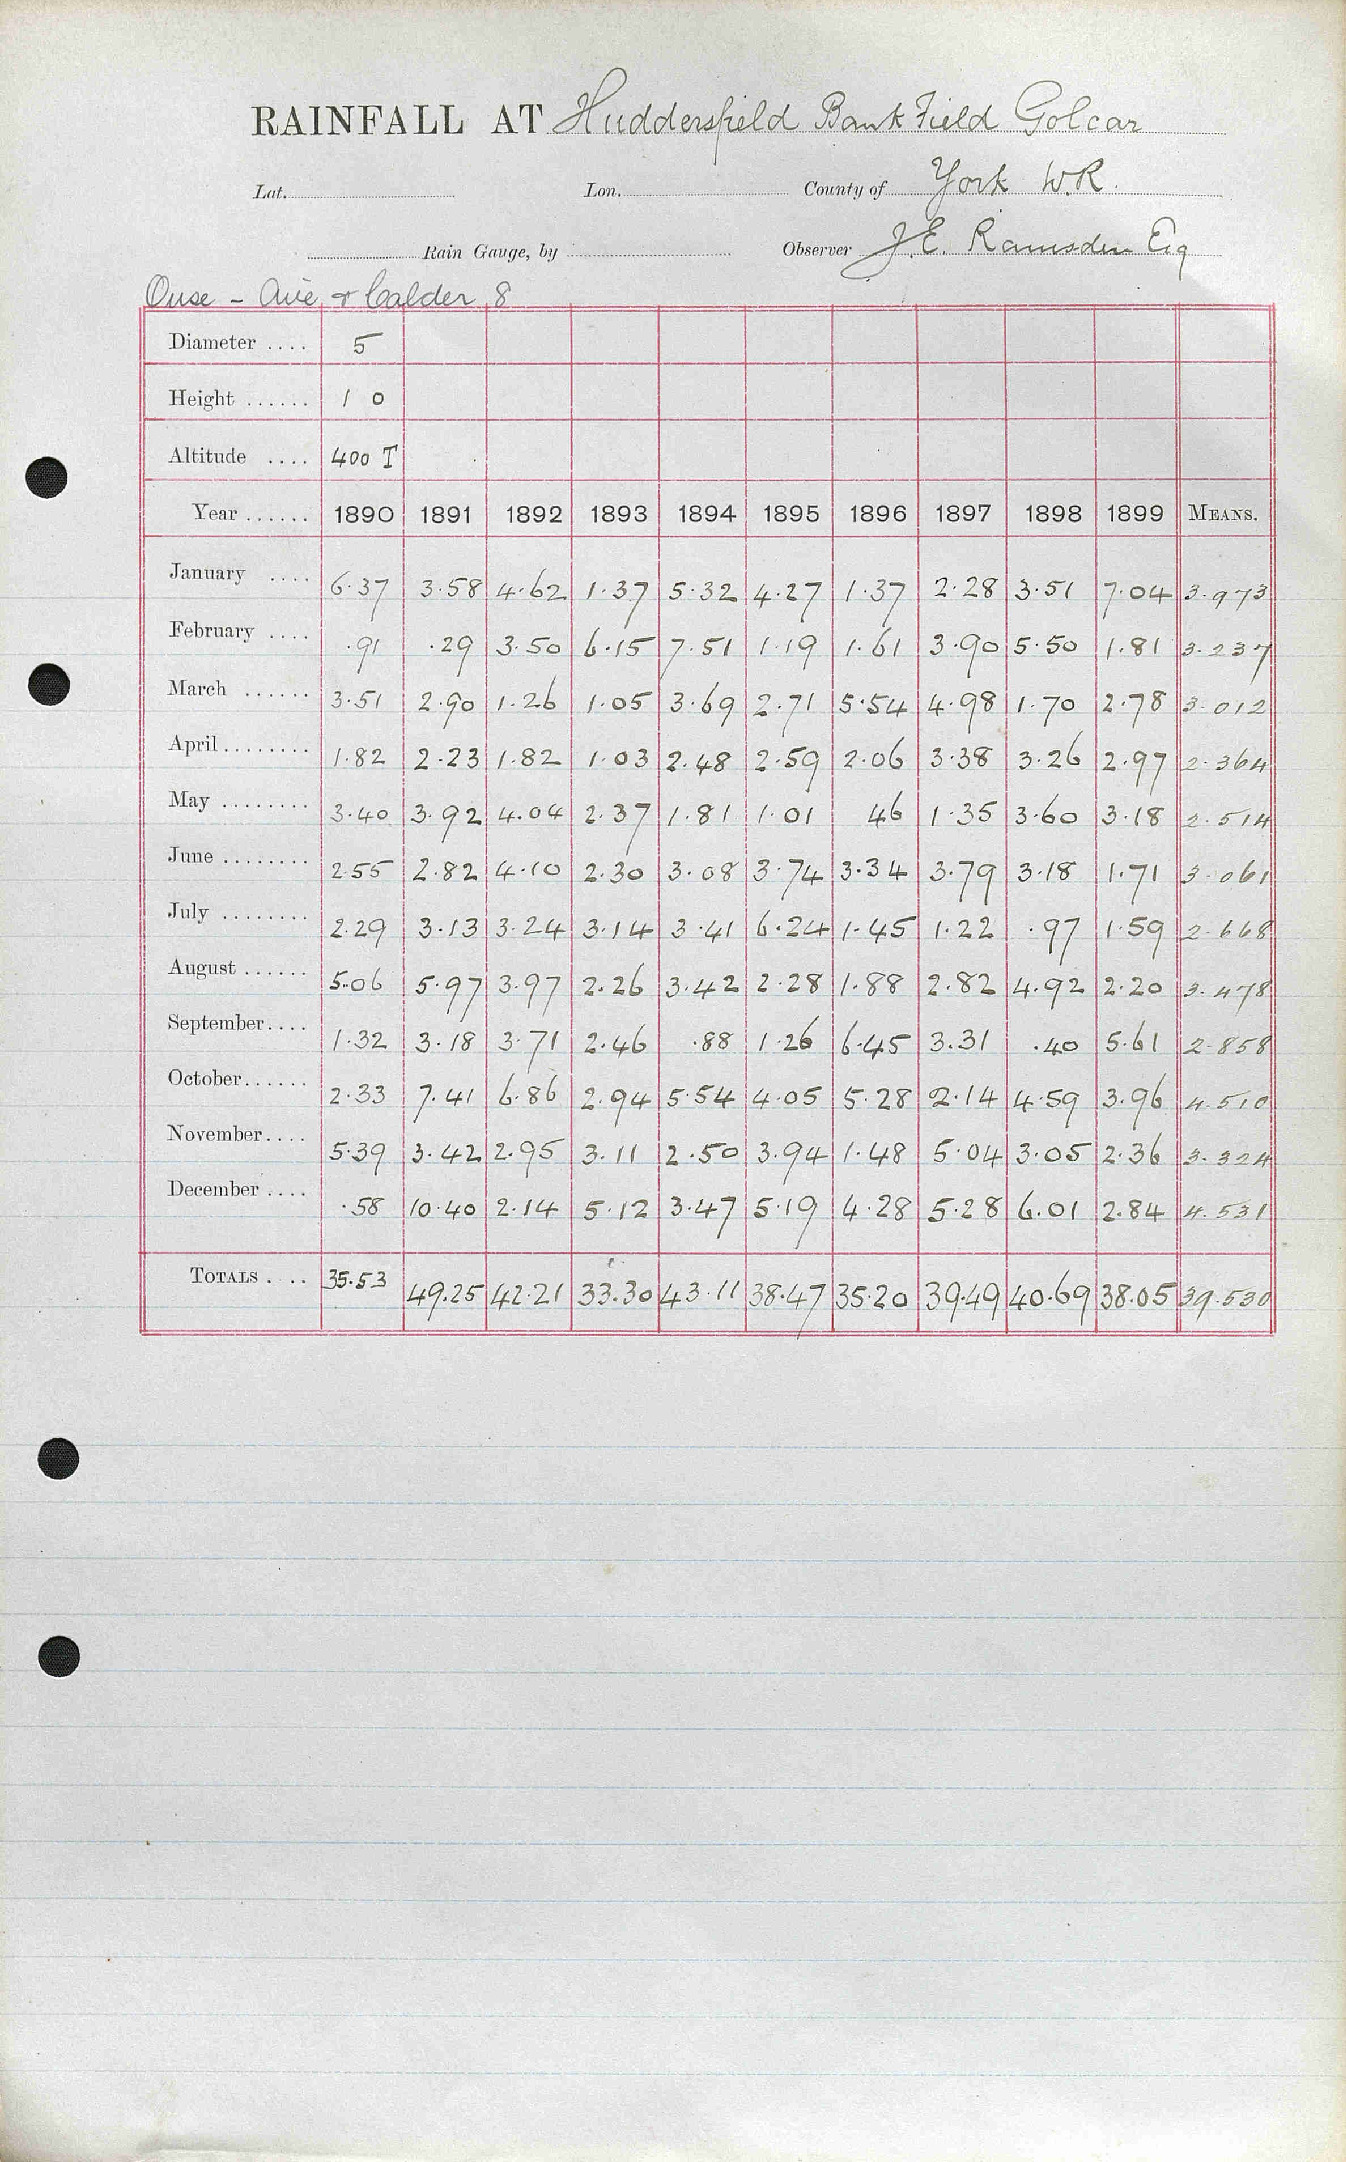 RAINFALL AT Huddersfield Bank Field Golcar
Lat. Lon. County of York W.R.
Rain Gauge, by Observer J.E. Ramsden Esq
Ouse - Aire & Calder 8
Diameter .... 5
Height ...... 1 0
Altitude .... 400 T
Year ...... 1890 1891 1892 1893 1894 1895 1896 1897 1898 1899 MEANS.
January .... 6.37 3.58 4.62 1.37 5.32 4.27 1.37 2.28 3.51 7.04 3.973
February .... .91 .29 3.50 6.15 7.51 1.19 1.61 3.90 5.50 1.81 3.237
March ...... 3.51 2.90 1.26 1.05 3.69 2.71 5.54 4.98 1.70 2.78 3.012
April ........ 1.82 2.23 1.82 1.03 2.48 2.59 2.06 3.38 3.26 2.97 2.364
May ........ 3.40 3.92 4.04 2.37 1.81 1.01 46 1.35 3.60 3.18 2.514
June ........ 2.55 2.82 4.10 2.30 3.08 3.74 3.34 3.79 3.18 1.71 3.061
July ........ 2.29 3.13 3.24 3.14 3.41 6.24 1.45 1.22 .97 1.59 2.668
August ...... 5.06 5.97 3.97 2.26 3.42 2.28 1.88 2.82 4.92 2.20 3.478
September .... 1.32 3.18 3.71 2.46 .88 1.26 6.45 3.31 .40 5.61 2.858
October ...... 2.33 7.41 6.86 2.94 5.54 4.05 5.28 2.14 4.59 3.96 4.510
November .... 5.39 3.42 2.95 3.11 2.50 3.94 1.48 5.04 3.05 2.36 3.324
December .... .58 10.40 2.14 5.12 3.47 5.19 4.28 5.28 6.01 2.84 4.531
TOTALS .... 35.53 49.25 42.21 33.30 43.11 38.47 35.20 39.49 40.69 38.05 39.530